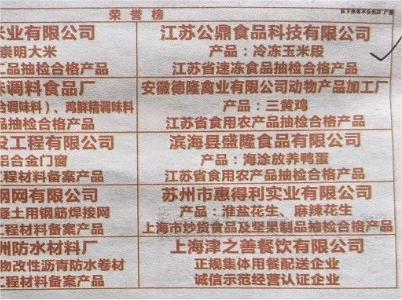 荣誉榜
米业有限公司
崇明大米
品抽检合格产品
江苏公鼎食品科技有限公司
产品：冷冻玉米段
江苏省速冻食品抽检合格产品
调料食品厂
合调味料)、鸡鲜精调味料
品抽检合格产品
安徽德隆禽业有限公司动物产品加工厂
产品：三黄鸡
江苏省食用农产品抽检合格产品
工程有限公司
铝合金门窗
工程材料备案产品
滨海县盛隆食品有限公司
产品：海涂放养鸭蛋
江苏省食用农产品抽检合格产品
钢网有限公司
土用钢筋焊接网
工程材料备案产品
苏州市惠得利实业有限公司
产品：淮盐花生、麻辣花生
上海市炒货食品及坚果制品抽检合格产品
州防水材料厂
物改性沥青防水卷材
工程材料备案产品
上海津之善餐饮有限公司
正规集体用餐配送企业
诚信示范经营认证企业